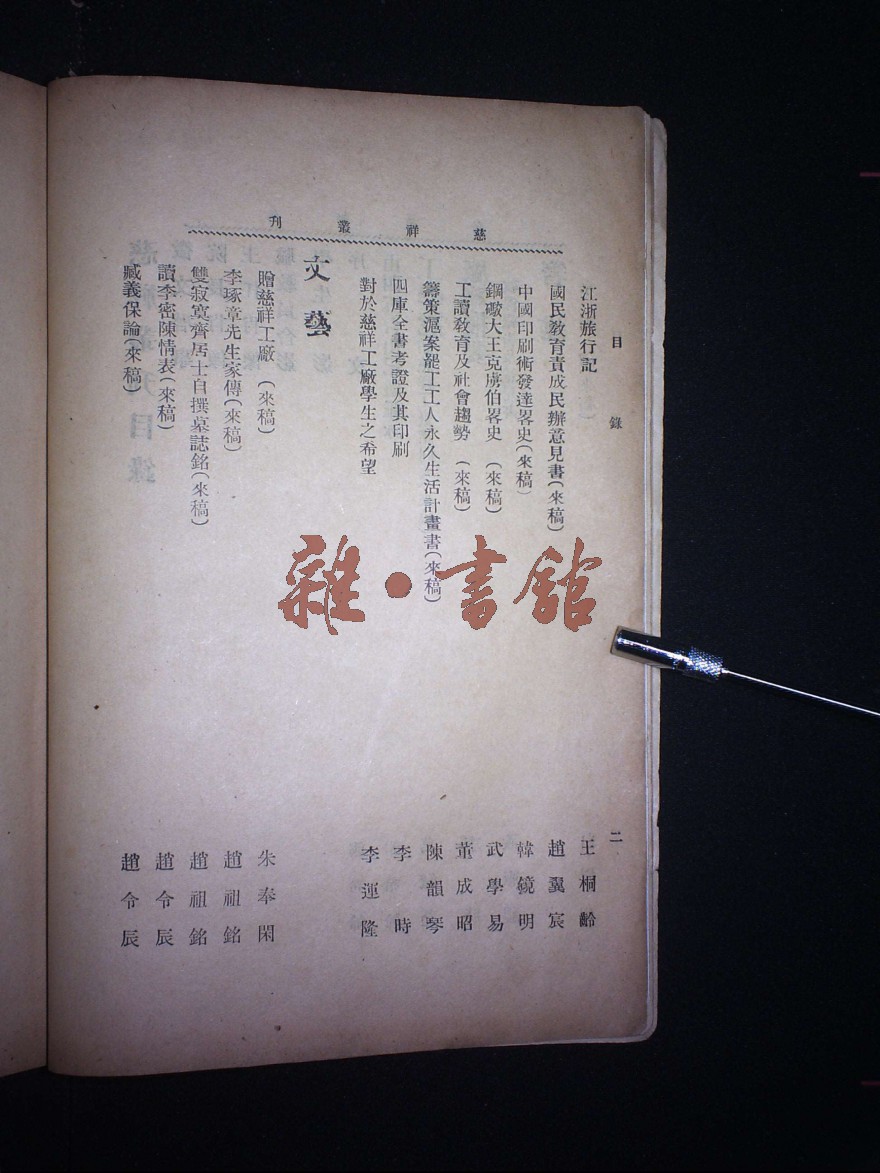 慈祥叢刊
目錄
二
江浙旅行記 王桐齡
國民教育責成民辦意見書(來稿) 趙翼宸
中國印刷術發達畧史(來稿) 韓鏡明
鋼礮大王克虜伯畧史(來稿) 武學易
工讀教育及社會趨勢(來稿) 董成昭
籌策滬案罷工工人永久生活計畫書(來稿) 陳韻琴
四庫全書考證及其印刷 李時
對於慈祥工廠學生之希望 李運隆
文藝
贈慈祥工廠(來稿) 朱奉閑
李琢章先生家傳(來稿) 趙祖銘
雙寂寞齊居士自撰墓誌銘(來稿) 趙祖銘
讀李密陳情表(來稿) 趙令辰
臧義保論(來稿) 趙令辰
雜·書館